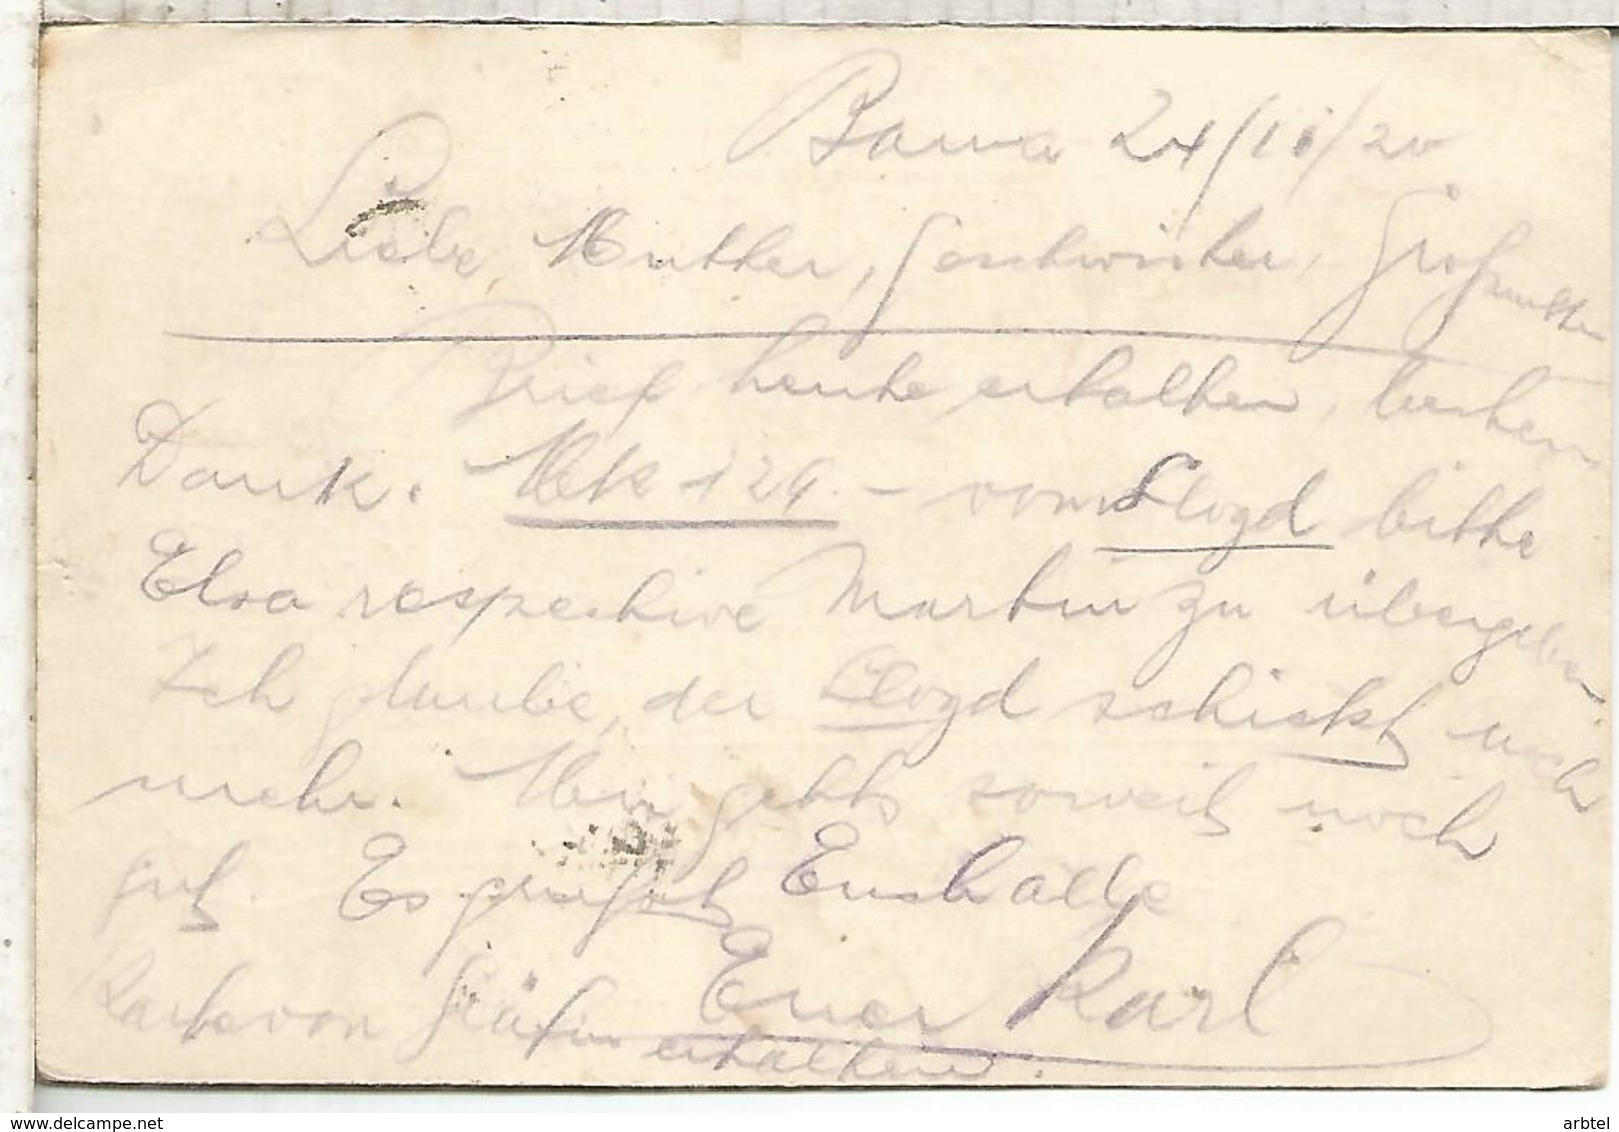 Barwa 24/11/20
Liebe Mutter, Geschwister, Großmutter
Brief heute erhalten, besten
Dank. Mk 124.– vom Lloyd bitte
Elsa respective Martin zu übergeben.
Ich glaube, der Lloyd schickt nich
mehr. Mir gehts soweit noch
gut. Es grüßt Euch alle
Euer Karl
Karte von Gräfin erhalten.
www.delcampe.net
arbtel